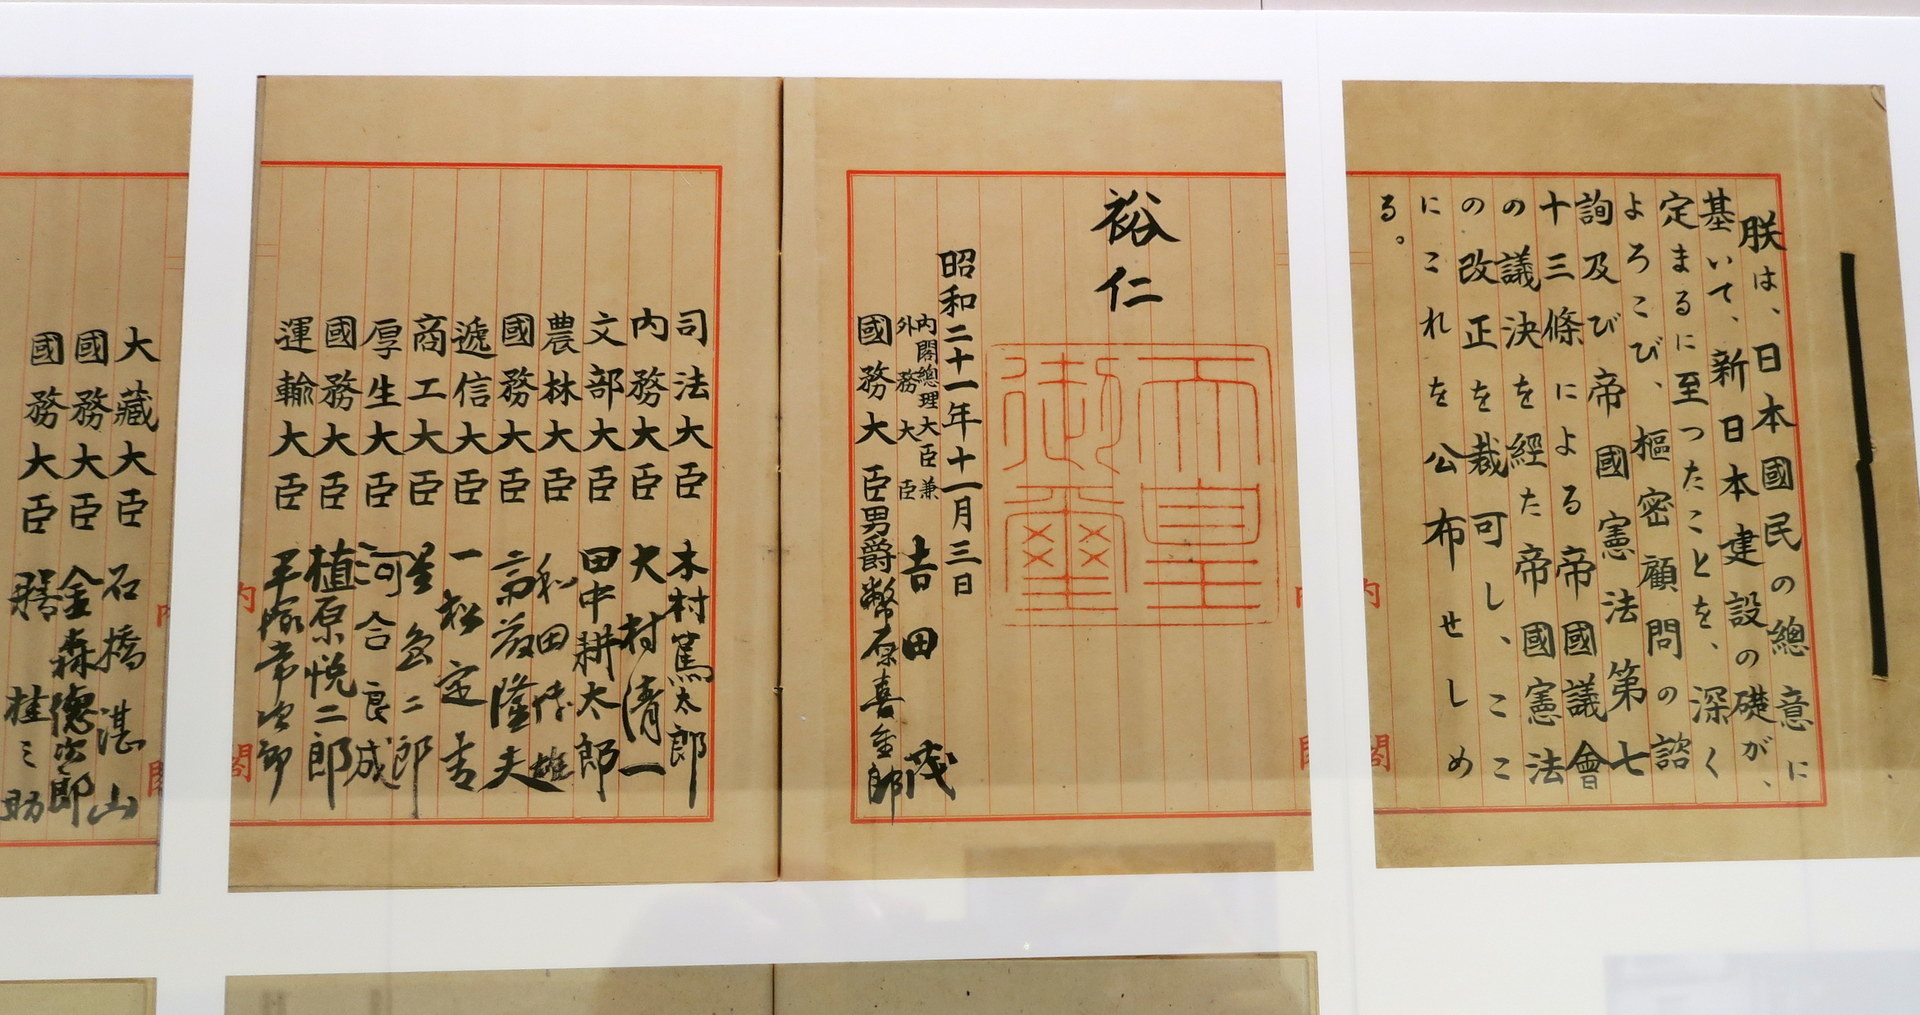 朕は、日本國民の總意に
基いて、新日本建設の礎が、
定まるに至つたことを、深く
よろこび、樞密顧問の諮
詢及び帝國憲法第七
十三條による帝國議會
の議決を經た帝國憲法
の改正を裁可し、ここ
にこれを公布せしめ
る。
内閣
裕仁
天皇
御璽
昭和二十一年十一月三日
内閣總理大臣兼
外務大臣 吉田茂
國務大臣男爵幣原喜重郎
司法大臣 木村篤太郎
内務大臣 大村清一
文部大臣 田中耕太郎
農林大臣 和田博雄
國務大臣 斎藤隆夫
遞信大臣 一松定吉
商工大臣 星島二郎
厚生大臣 河合良成
國務大臣 植原悦二郎
運輸大臣 平塚常次郎
内閣
大藏大臣 石橋湛山
國務大臣 金森德次郎
國務大臣 膳桂之助